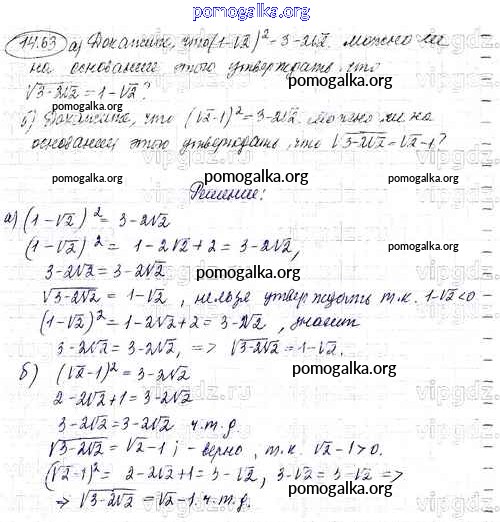 pomogalka.org
14.63 а) Докажите, что (1-√2)² = 3-2√2. Можно ли
на основании этого утверждать, что
√3-2√2 = 1-√2?
б) Докажите, что (√2-1)² = 3-2√2. Можно ли на
основании этого утверждать, что √3-2√2 = √2-1?
pomogalka.org
Решение:
а) (1-√2)² = 3-2√2
(1-√2)² = 1-2√2+2 = 3-2√2,
3-2√2 = 3-2√2 pomogalka.org
√3-2√2 = 1-√2, нельзя утверждать т.к. 1-√2<0
(1-√2)² = 1-2√2+2 = 3-2√2, значит
3-2√2 = 3-2√2, => √3-2√2 = 1-√2.
б) (√2-1)² = 3-2√2 pomogalka.org
2-2√2+1 = 3-2√2
3-2√2 = 3-2√2 ч.т.д.
√3-2√2 = √2-1; - верно, т.к. √2-1>0.
(√2-1)² = 2-2√2+1 = 3-√2, 3-√2 = 3-√2 =>
=> √3-2√2 = √2-1. ч.т.д.
pomogalka.org